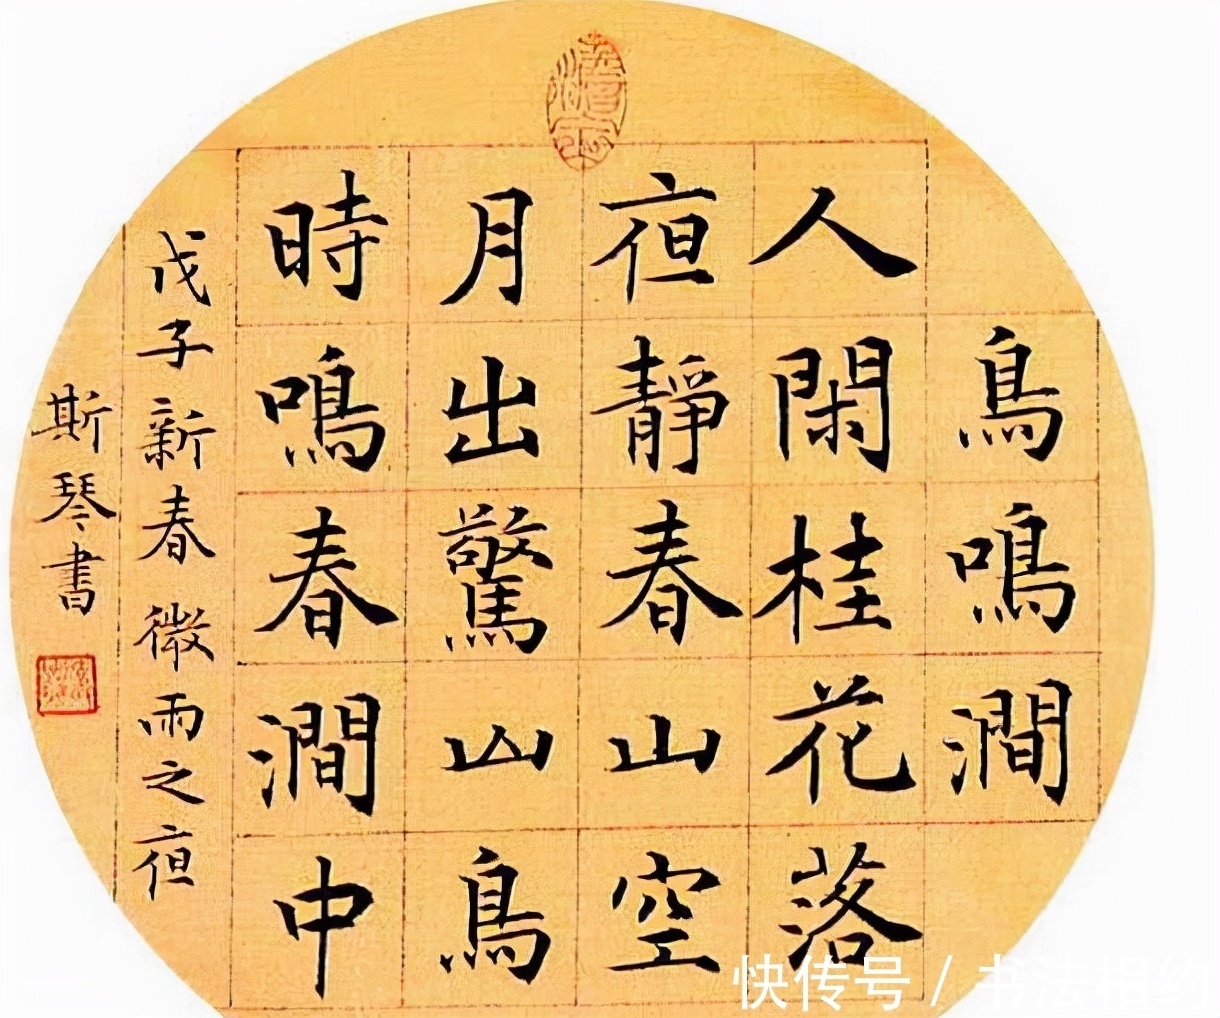 鳥鳴澗
人閑桂花落
夜靜春山空
月出驚山鳥
時鳴春澗中
戊子新春微雨之夜
斯琴書
快传号 / 书法相约